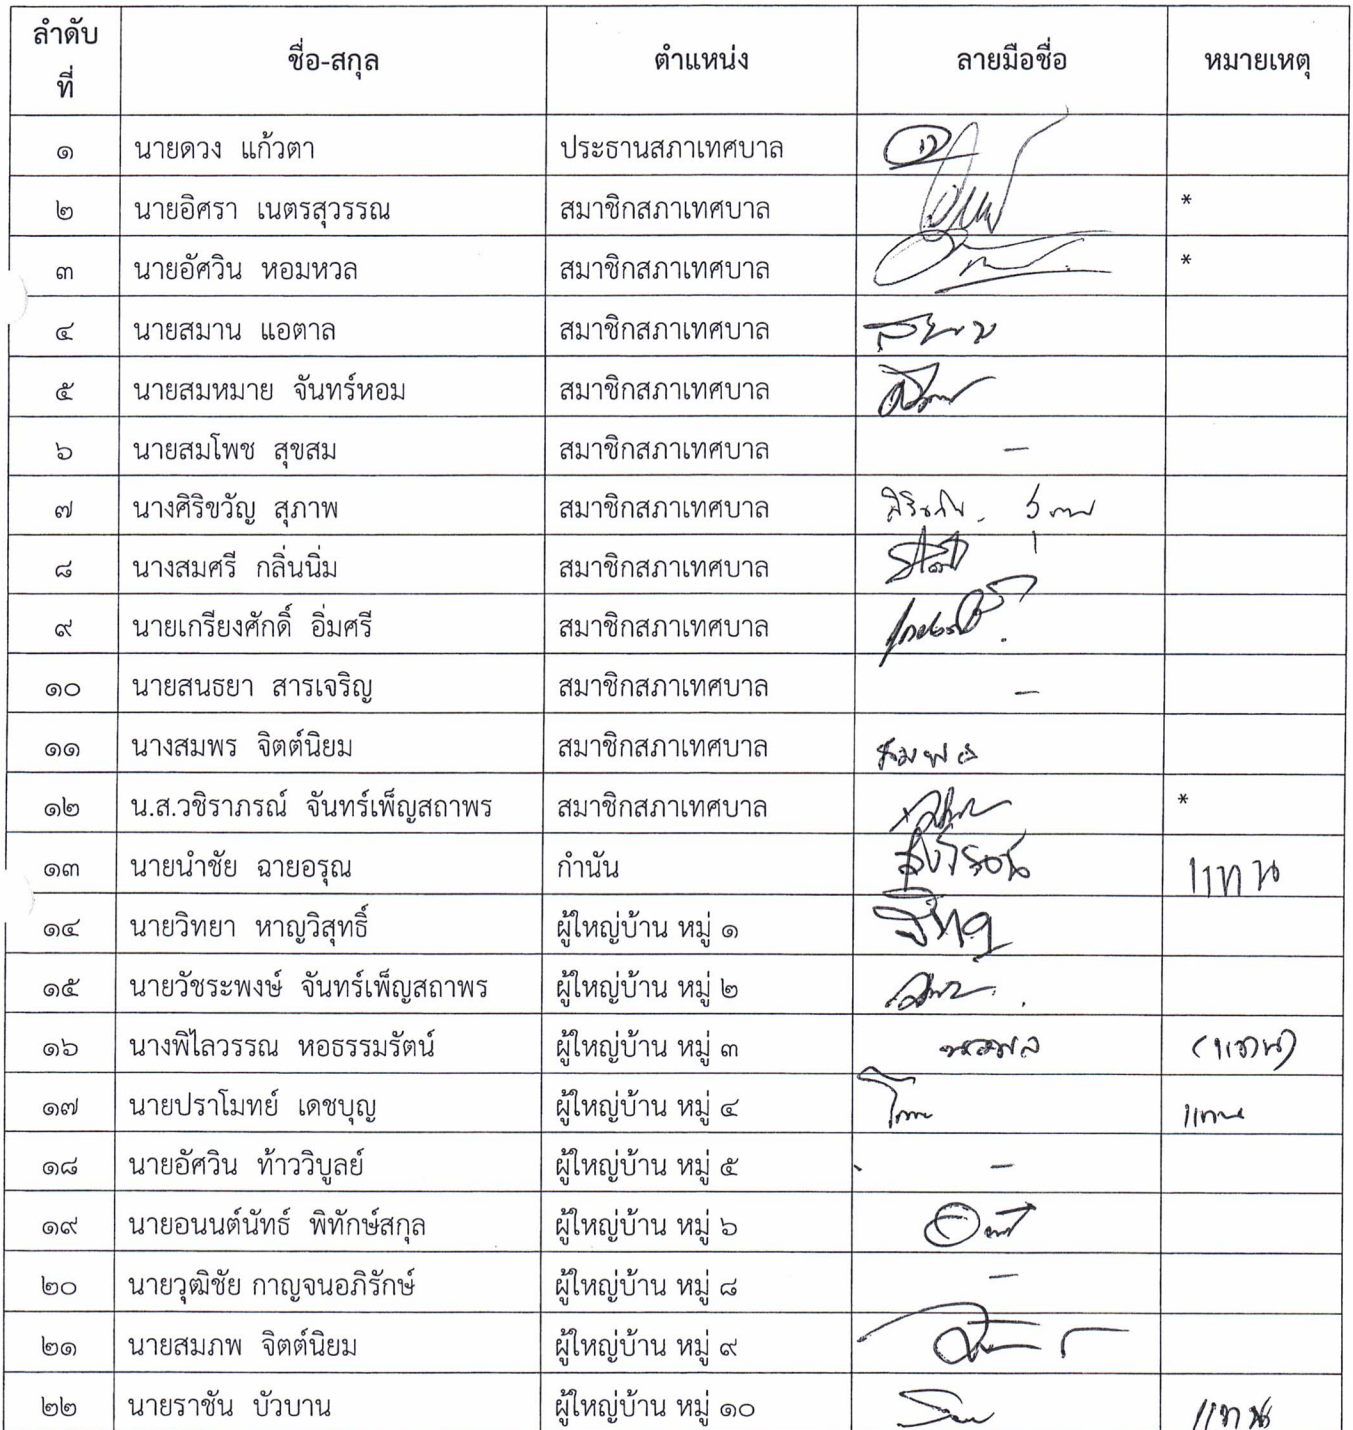 ลำดับที่ ชื่อ-สกุล ตำแหน่ง ลายมือชื่อ หมายเหตุ
๑ นายดวง แก้วตา ประธานสภาเทศบาล
๒ นายอิศรา เนตรสุวรรณ สมาชิกสภาเทศบาล *
๓ นายอัศวิน หอมหวล สมาชิกสภาเทศบาล *
๔ นายสมาน แอตาล สมาชิกสภาเทศบาล
๕ นายสมหมาย จันทร์หอม สมาชิกสภาเทศบาล
๖ นายสมโพช สุขสม สมาชิกสภาเทศบาล –
๗ นางศิริขวัญ สุภาพ สมาชิกสภาเทศบาล
๘ นางสมศรี กลิ่นนิ่ม สมาชิกสภาเทศบาล
๙ นายเกรียงศักดิ์ อิ่มศรี สมาชิกสภาเทศบาล
๑๐ นายสนธยา สารเจริญ สมาชิกสภาเทศบาล –
๑๑ นางสมพร จิตต์นิยม สมาชิกสภาเทศบาล สมพร
๑๒ น.ส.วชิราภรณ์ จันทร์เพ็ญสถาพร สมาชิกสภาเทศบาล *
๑๓ นายนำชัย ฉายอรุณ กำนัน แทน
๑๔ นายวิทยา หาญวิสุทธิ์ ผู้ใหญ่บ้าน หมู่ ๑
๑๕ นายวัชระพงษ์ จันทร์เพ็ญสถาพร ผู้ใหญ่บ้าน หมู่ ๒
๑๖ นางพิไลวรรณ หอธรรมรัตน์ ผู้ใหญ่บ้าน หมู่ ๓ (แทน)
๑๗ นายปราโมทย์ เดชบุญ ผู้ใหญ่บ้าน หมู่ ๔ แทน
๑๘ นายอัศวิน ท้าววิบูลย์ ผู้ใหญ่บ้าน หมู่ ๕ –
๑๙ นายอนนต์นัทธ์ พิทักษ์สกุล ผู้ใหญ่บ้าน หมู่ ๖
๒๐ นายวุฒิชัย กาญจนอภิรักษ์ ผู้ใหญ่บ้าน หมู่ ๘ –
๒๑ นายสมภพ จิตต์นิยม ผู้ใหญ่บ้าน หมู่ ๙
๒๒ นายราชัน บัวบาน ผู้ใหญ่บ้าน หมู่ ๑๐ แทน